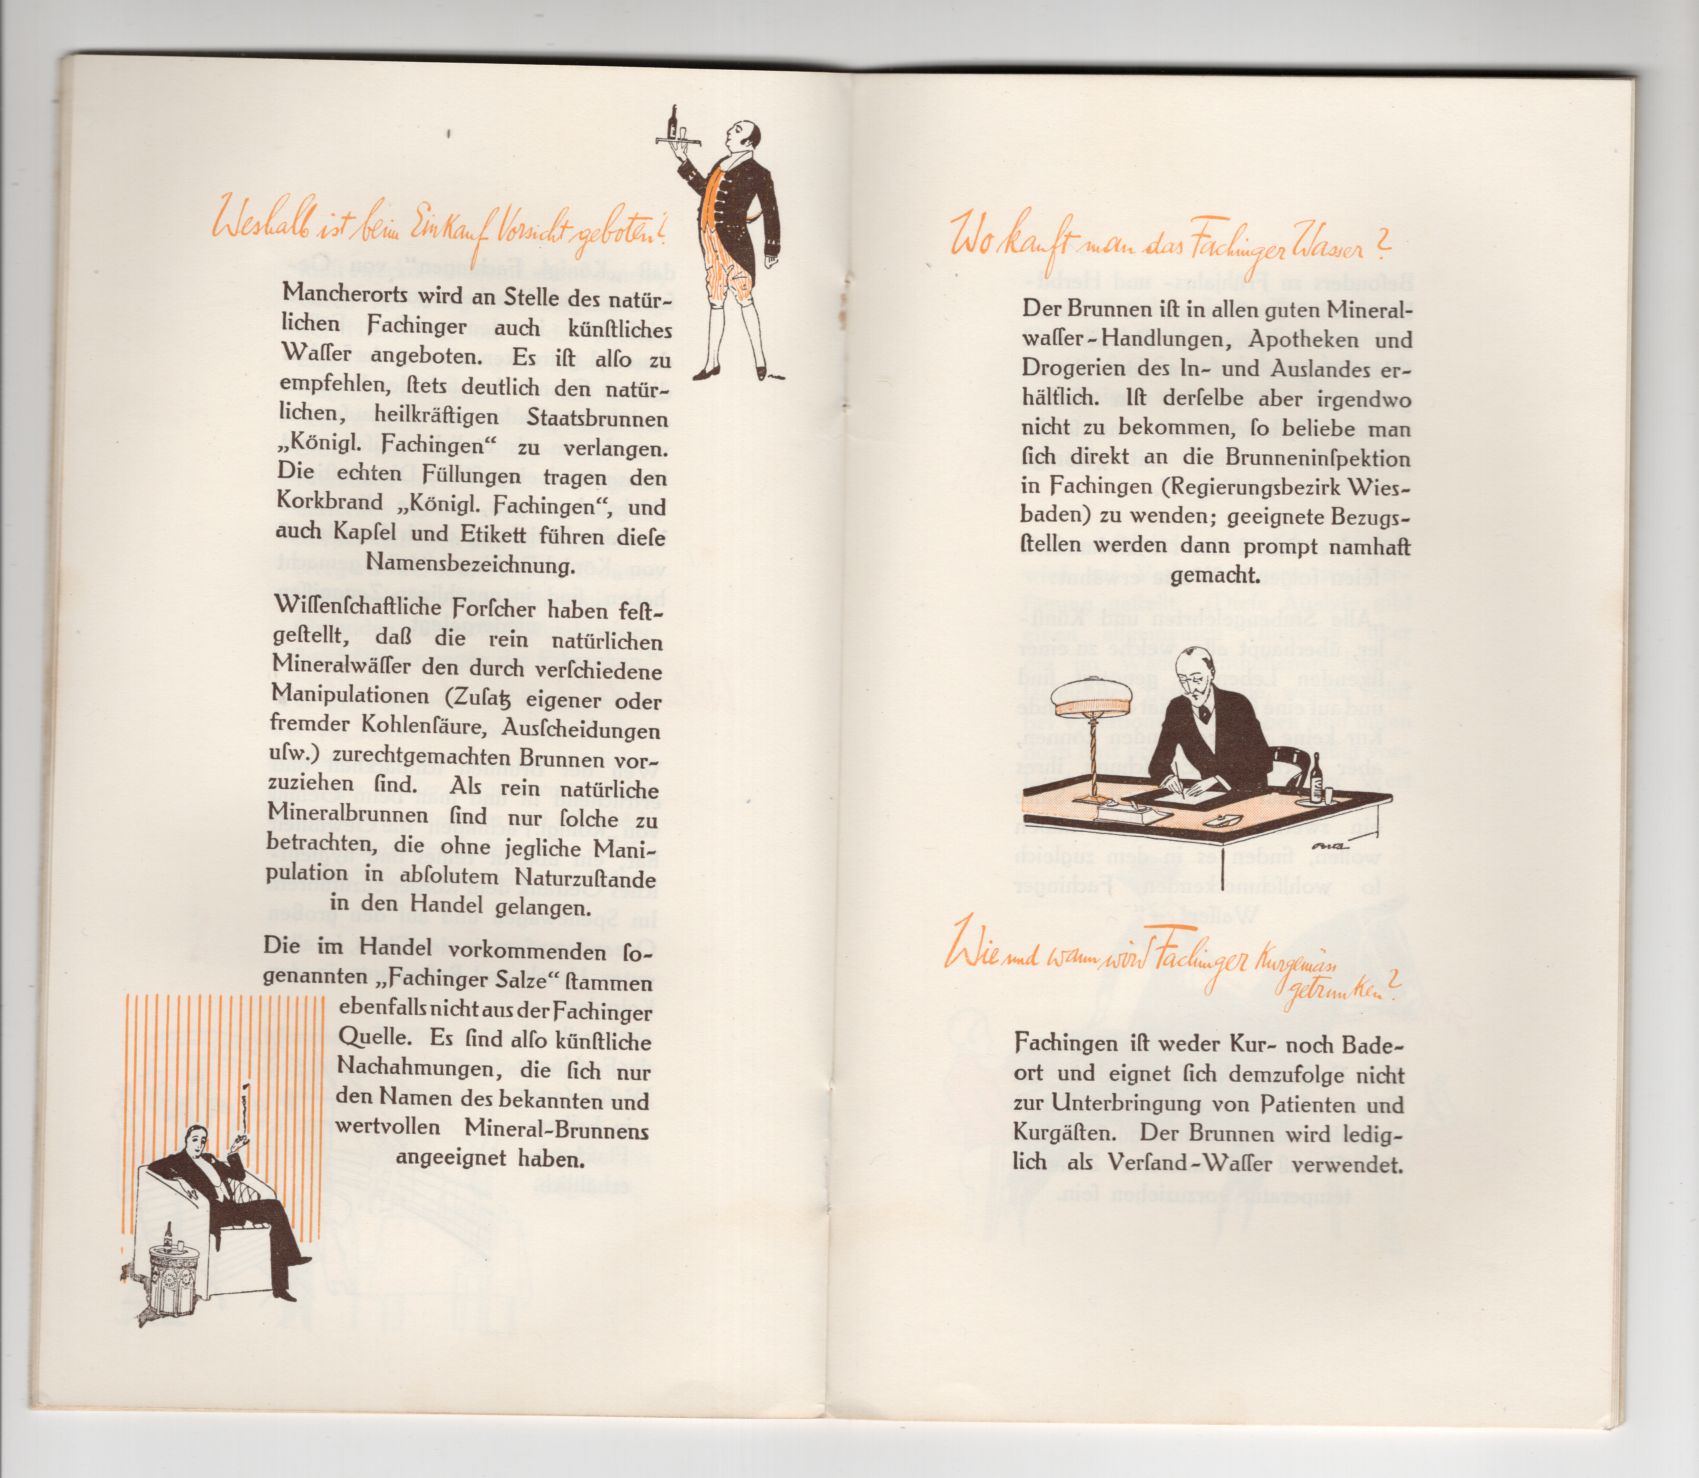 Weshalb ist beim Einkauf Vorsicht geboten?
Mancherorts wird an Stelle des natür-
lichen Fachinger auch künſtliches
Waſſer angeboten. Es iſt alſo zu
empfehlen, ſtets deutlich den natür-
lichen, heilkräftigen Staatsbrunnen
„Königl. Fachingen“ zu verlangen.
Die echten Füllungen tragen den
Korkbrand „Königl. Fachingen“, und
auch Kapſel und Etikett führen dieſe
Namensbezeichnung.
Wiſſenſchaftliche Forſcher haben feſt-
geſtellt, daß die rein natürlichen
Mineralwäſſer den durch verſchiedene
Manipulationen (Zuſatz eigener oder
fremder Kohlenſäure, Ausſcheidungen
uſw.) zurechtgemachten Brunnen vor-
zuziehen ſind. Als rein natürliche
Mineralbrunnen ſind nur ſolche zu
betrachten, die ohne jegliche Mani-
pulation in abſolutem Naturzuſtande
in den Handel gelangen.
Die im Handel vorkommenden ſo-
genannten „Fachinger Salze“ ſtammen
ebenfalls nicht aus der Fachinger
Quelle. Es ſind alſo künſtliche
Nachahmungen, die ſich nur
den Namen des bekannten und
wertvollen Mineral-Brunnens
angeeignet haben.
Wo kauft man das Fachinger Wasser?
Der Brunnen iſt in allen guten Mineral-
waſſer-Handlungen, Apotheken und
Drogerien des In- und Auslandes er-
hältlich. Iſt derſelbe aber irgendwo
nicht zu bekommen, ſo beliebe man
ſich direkt an die Brunneninſpektion
in Fachingen (Regierungsbezirk Wies-
baden) zu wenden; geeignete Bezugs-
ſtellen werden dann prompt namhaft
gemacht.
Wie und wann wird Fachinger kurgemäss
getrunken?
Fachingen iſt weder Kur- noch Bade-
ort und eignet ſich demzufolge nicht
zur Unterbringung von Patienten und
Kurgäſten. Der Brunnen wird ledig-
lich als Verſand-Waſſer verwendet.